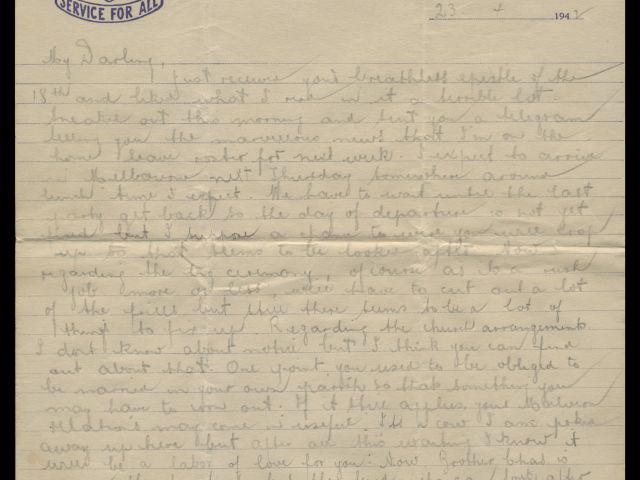 SERVICE FOR ALL
23 4 194
My Darling,
I just received your breathless epistle of the
18th and liked what I read in it a terrible lot.
Sneaked out this morning and sent you a telegram
telling you the marvellous news that I'm on the
home leave roster for next week. I expect to arrive
Melbourne next Thursday somewhere around
lunch time I expect. We have to wait until the last
party get back so the day of departure is not yet
fixed but I suppose a
up so that seems to be looked after. Now
regarding the big ceremony, of course as its a rush
job more or less, we'll have to cut out a lot
of the but still there seems to be a lot of
things to fix up. Regarding the church arrangements
I don't know about notice but I think you can find
out about that. One point, you used to be obliged to
be married in your own parish so that something you
may have to work out. If it still applies, your Malvern
relations may come in useful. It's a cow I am
away up here but after all this waiting I know it
will be a labor of love for you. Now Brother Chas is